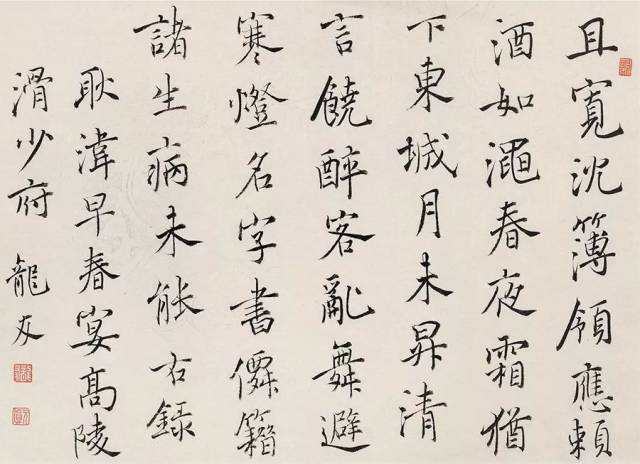 且寬沈簿領應賴
酒如澠春夜霜猶
下東城月未昇清
言饒醉客亂舞避
寒燈名字書僊籍
諸生病未能右録
耿湋早春宴高陵
滑少府 龍友